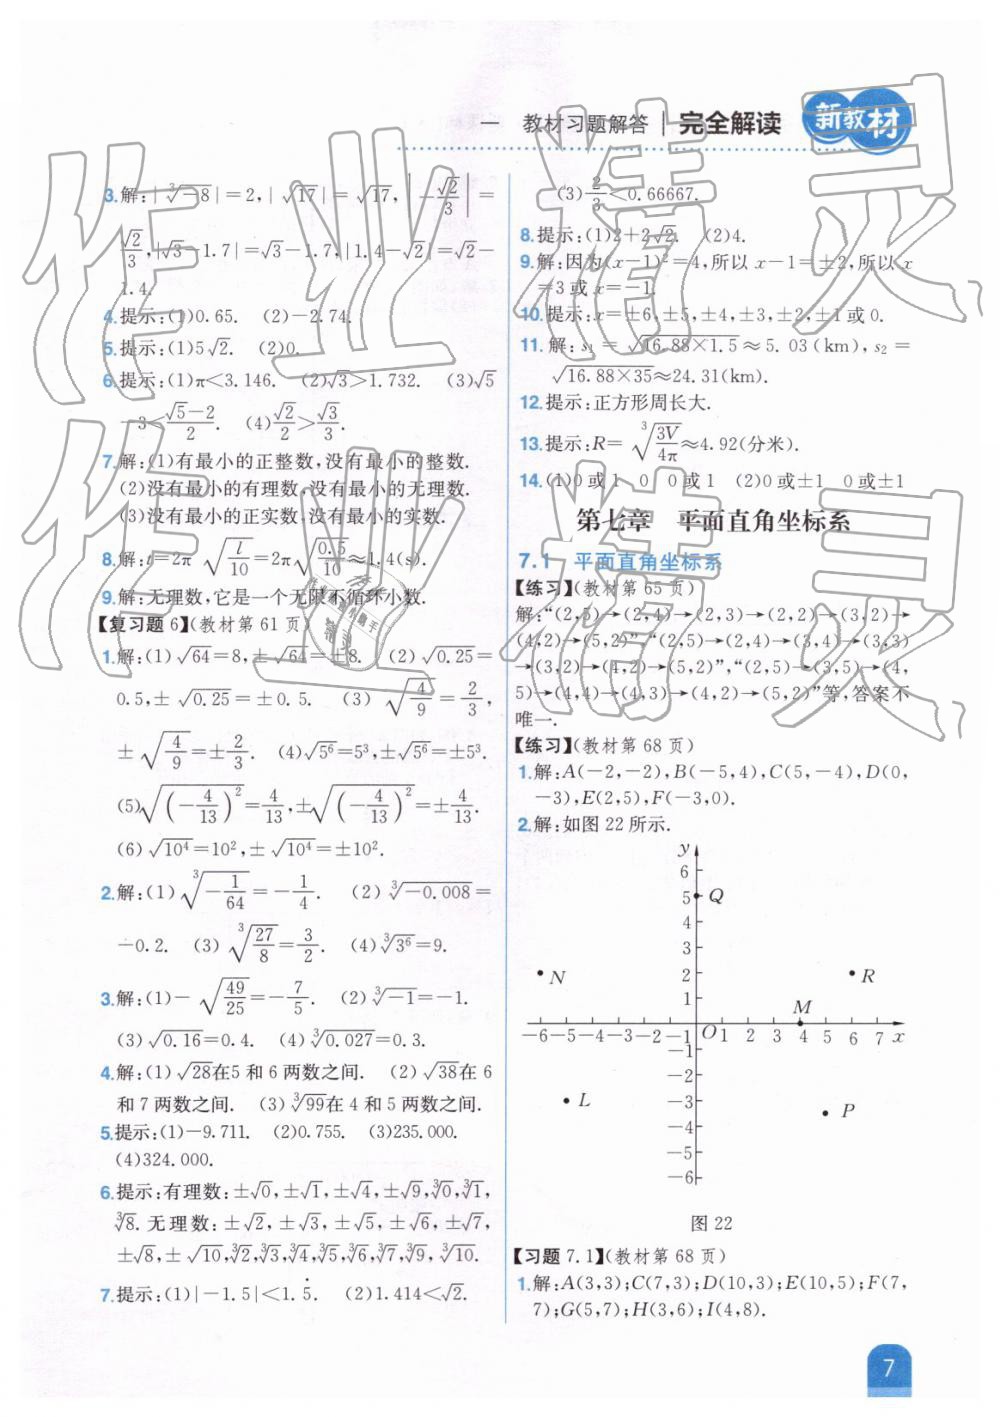 一 教材习题解答 | 完全解读 新教材
3.解:|∛-8|=2,|√17|=√17,|-√2/3|=
√2/3,|√3-1.7|=√3-1.7,|1.4-√2|=√2-
1.4.
4.提示:(1)0.65. (2)-2.74.
5.提示:(1)5√2. (2)0.
6.提示:(1)π<3.146. (2)√3>1.732. (3)√5
-3<(√5-2)/2. (4)√2/2>√3/3.
7.解:(1)有最小的正整数,没有最小的整数.
(2)没有最小的有理数,没有最小的无理数.
(3)没有最小的正实数,没有最小的实数.
8.解:t=2π√(l/10)=2π√(0.5/10)≈1.4(s).
9.解:无理数,它是一个无限不循环小数.
【复习题6】(教材第61页)
1.解:(1)√64=8,±√64=±8. (2)√0.25=
0.5,±√0.25=±0.5. (3)√(4/9)=2/3,
±√(4/9)=±2/3. (4)√5⁶=5³,±√5⁶=±5³.
(5)√(-4/13)²=4/13,±√(-4/13)²=±4/13.
(6)√10⁴=10²,±√10⁴=±10².
2.解:(1)∛(-1/64)=-1/4. (2)∛-0.008=
-0.2. (3)∛(27/8)=3/2. (4)∛3⁶=9.
3.解:(1)-√(49/25)=-7/5. (2)∛-1=-1.
(3)√0.16=0.4. (4)∛0.027=0.3.
4.解:(1)√28在5和6两数之间. (2)√38在6
和7两数之间. (3)∛99在4和5两数之间.
5.提示:(1)-9.711. (2)0.755. (3)235.000.
(4)324.000.
6.提示:有理数:±√0,±√1,±√4,±√9,∛0,∛1,
∛8.无理数:±√2,±√3,±√5,±√6,±√7,
±√8,±√10,∛2,∛3,∛4,∛5,∛6,∛7,∛9,∛10.
7.提示:(1)|-1.5|<1.5̇. (2)1.414<√2.
(3)2/3<0.66667.
8.提示:(1)2+2√2. (2)4.
9.解:因为(x-1)²=4,所以x-1=±2,所以x
=3或x=-1.
10.提示:x=±6,±5,±4,±3,±2,±1或0.
11.解:s₁=√16.88×1.5≈5.03(km),s₂=
√16.88×35≈24.31(km).
12.提示:正方形周长大.
13.提示:R=∛(3V/4π)≈4.92(分米).
14.(1)0或1 0 0或1 (2)0或±1 0或±1
第七章 平面直角坐标系
7.1 平面直角坐标系
【练习】(教材第65页)
解:“(2,5)→(2,4)→(2,3)→(2,2)→(3,2)→
(4,2)→(5,2)”“(2,5)→(2,4)→(3,4)→(3,3)
→(3,2)→(4,2)→(5,2)”,“(2,5)→(3,5)→(4,
5)→(4,4)→(4,3)→(4,2)→(5,2)”等,答案不
唯一.
【练习】(教材第68页)
1.解:A(-2,-2),B(-5,4),C(5,-4),D(0,
-3),E(2,5),F(-3,0).
2.解:如图22所示.
y
6
5 Q
4
3
N 2 R
1 M
-6-5-4-3-2-1 O 1 2 3 4 5 6 7 x
-1
-2
L -3 P
-4
-5
-6
图22
【习题7.1】(教材第68页)
1.解:A(3,3);C(7,3);D(10,3);E(10,5);F(7,
7);G(5,7);H(3,6);I(4,8).
7
作业精灵
作业精灵